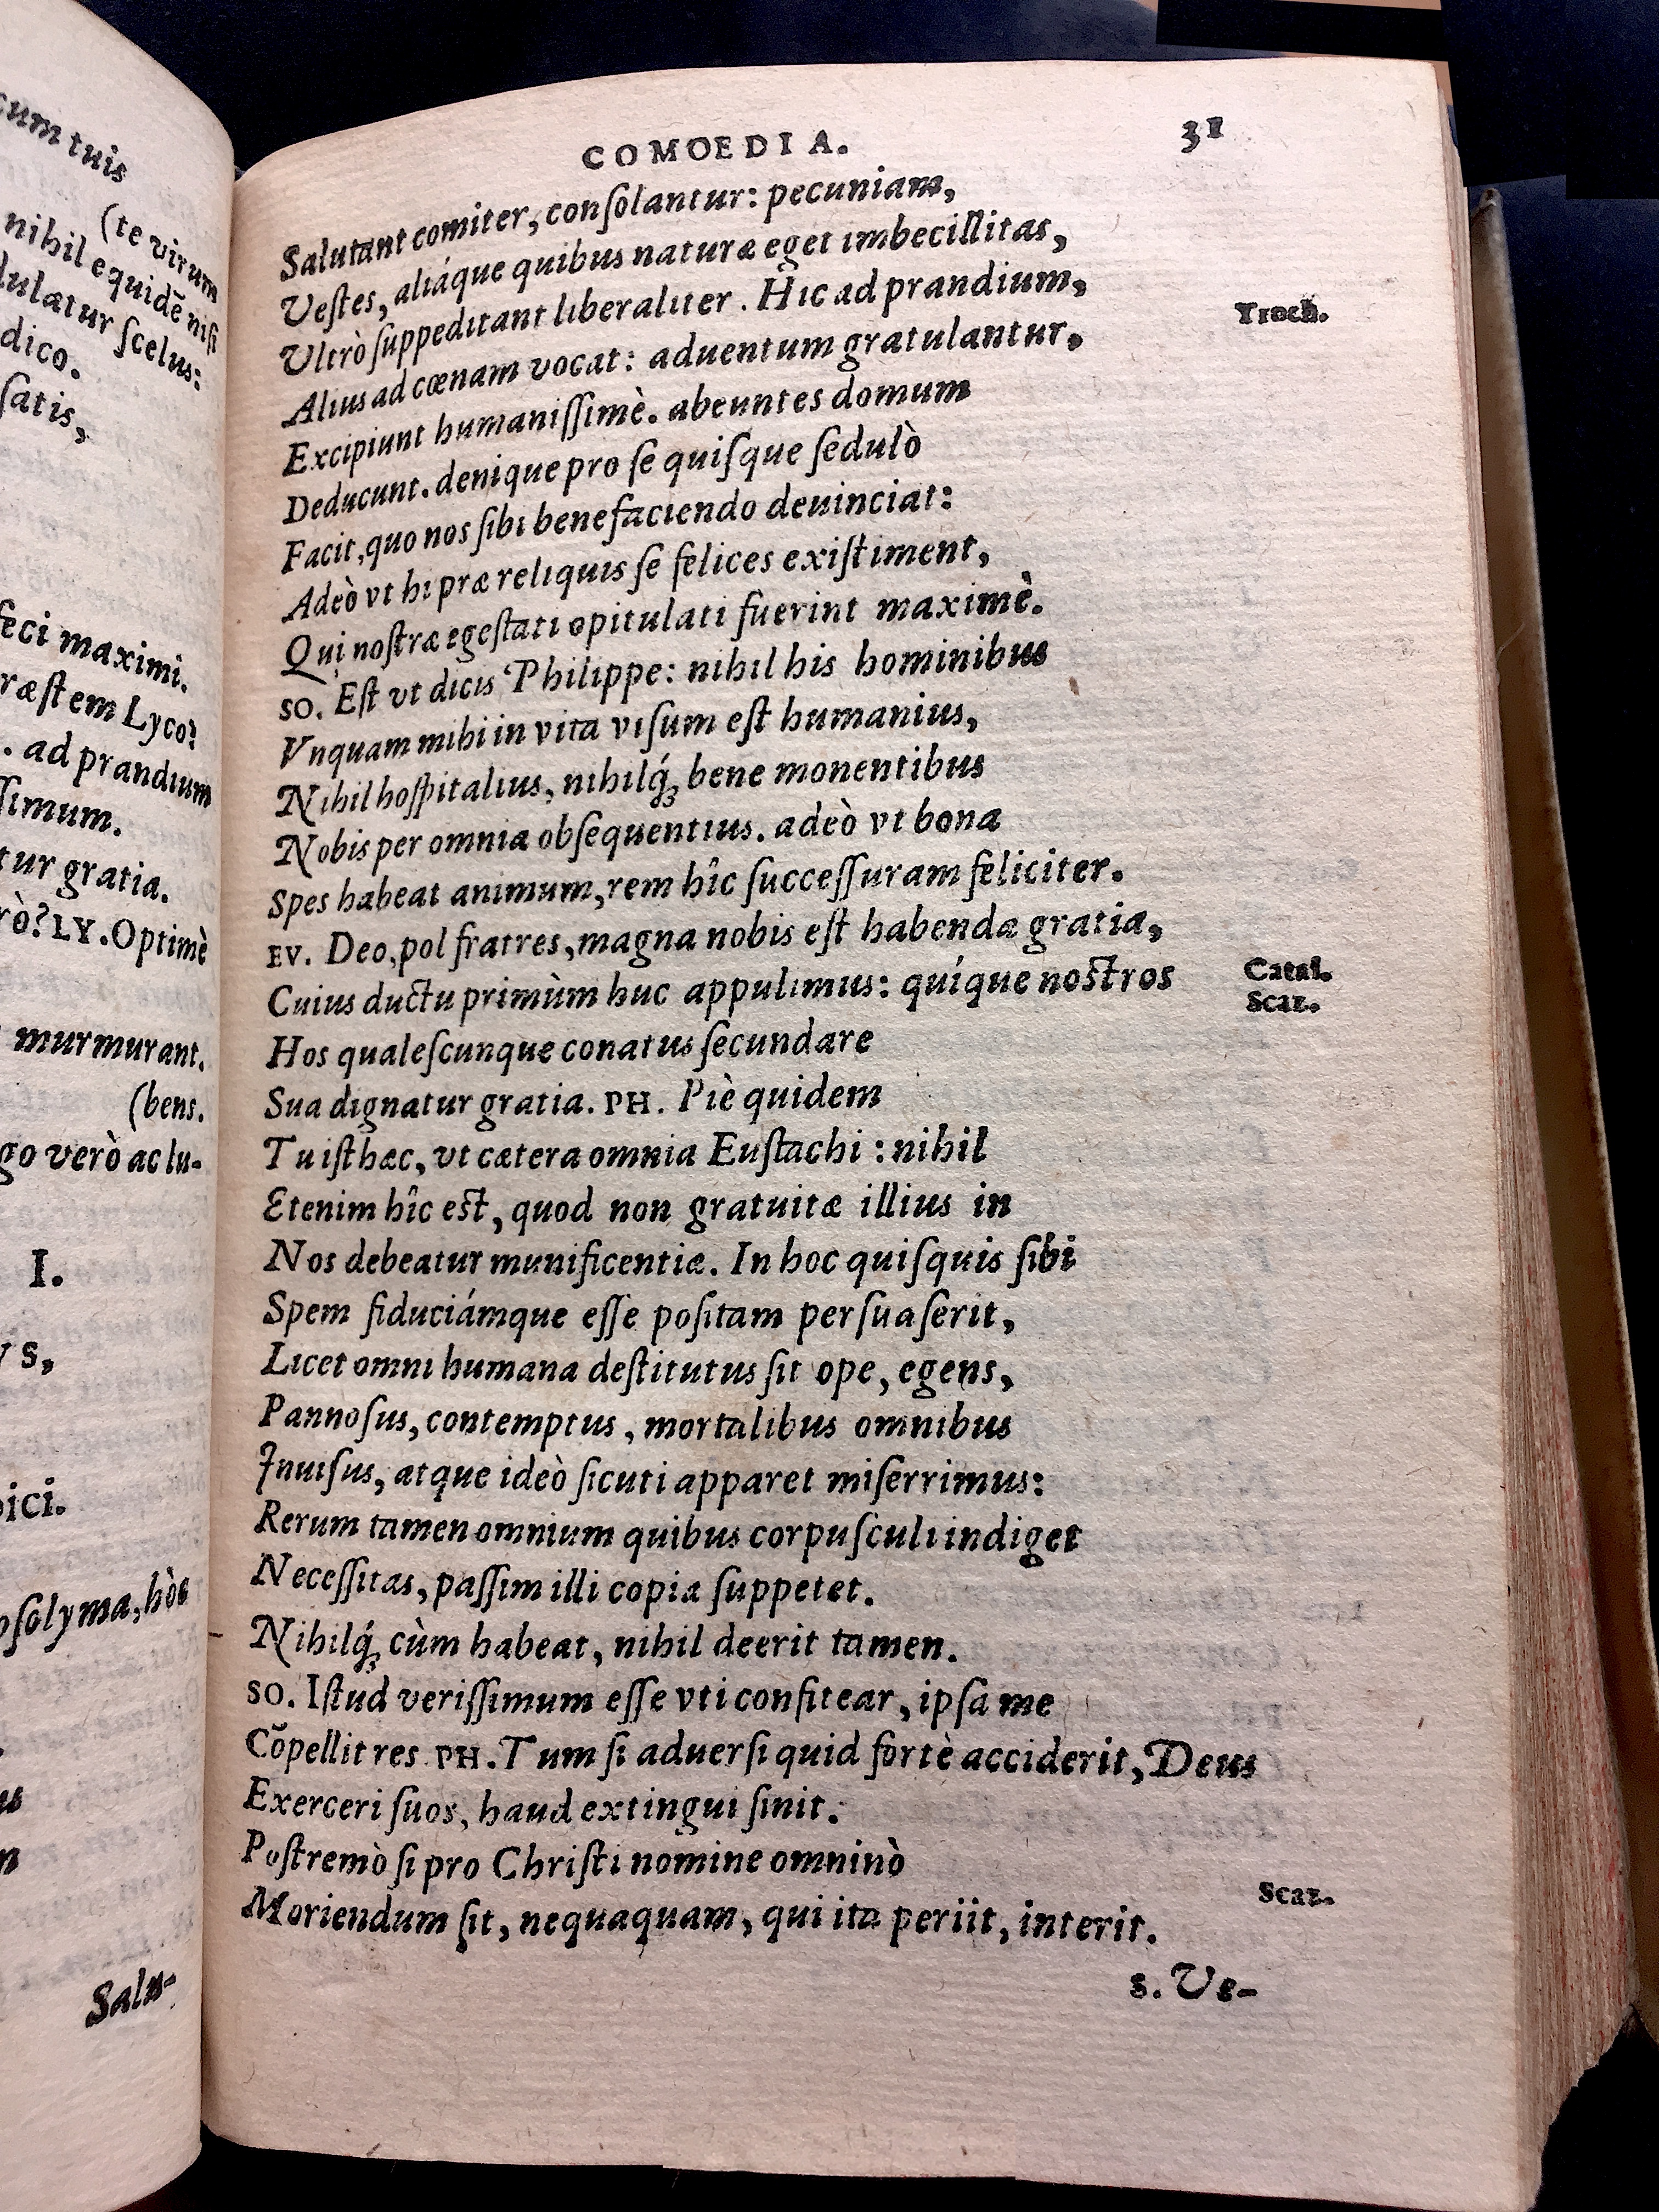 cum tuis
(te virum
nihil equidē nisi
dulatur scelus:
dico.
satis,
feci maximi.
Lyco?
. ad prandium
simum.
tur gratia.
rò? LY. Optimè
murmurant.
(bens.
go verò ac lu-
I.
VS,
pici.
osolyma, hòc
Salu-
COMOEDIA. 31
Salutant comiter, consolantur: pecuniam,
Vestes, aliáque quibus naturæ eget imbecillitas,
Ultrò suppeditant liberaliter. Hic ad prandium, Troch.
Alius ad cœnam vocat: aduentum gratulantur,
Excipiunt humanissimè. abeuntes domum
Deducunt. denique pro se quisque sedulò
Facit, quo nos sibi benefaciendo deuinciat:
Adeò vt hi præ reliquis se felices existiment,
Qui nostræ egestati opitulati fuerint maximè.
SO. Est vt dicis Philippe: nihil his hominibus
Vnquam mihi in vita visum est humanius,
Nihil hospitalius, nihilq́; bene monentibus
Nobis per omnia obsequentius. adeò vt bona
Spes habeat animum, rem hîc successuram feliciter.
EV. Deo, pol fratres, magna nobis est habenda gratia, Catal.
Cuius ductu primùm huc appulimus: quíque nostros Scaz.
Hos qualescunque conatus secundare
Sua dignatur gratia. PH. Piè quidem
Tu isthæc, vt cætera omnia Eustachi: nihil
Etenim hîc est, quod non gratuitæ illius in
Nos debeatur munificentiæ. In hoc quisquis sibi
Spem fiduciámque esse positam persuaserit,
Licet omni humana destitutus sit ope, egens,
Pannosus, contemptus, mortalibus omnibus
Inuisus, atque ideò sicuti apparet miserrimus:
Rerum tamen omnium quibus corpusculi indiget
Necessitas, passim illi copia suppetet.
Nihilq́; cùm habeat, nihil deerit tamen.
SO. Istud verissimum esse vti confitear, ipsa me
Cõpellit res. PH. Tum si aduersi quid fortè acciderit, Deus
Exerceri suos, haud extingui sinit.
Postremò si pro Christi nomine omninò
Moriendum sit, nequaquam, qui ita periit, interit. Scaz.
S. Ve-